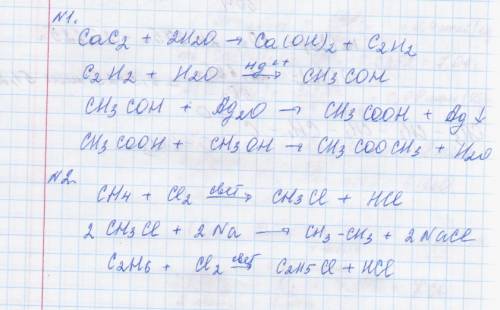 №1.
CaC2 + 2H2O → Ca(OH)2 + C2H2
C2H2 + H2O Hg2+→ CH3COH
CH3COH + Ag2O → CH3COOH + Ag↓
CH3COOH + CH3OH → CH3COOCH3 + H2O
№2.
CH4 + Cl2 свет→ CH3Cl + HCl
2CH3Cl + 2Na → CH3-CH3 + 2NaCl
C2H6 + Cl2 свет→ C2H5Cl + HCl